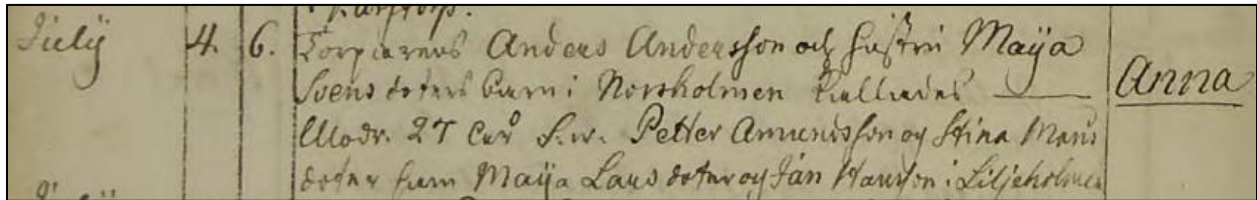 Karstorp.
July 4. 6. Torparens Anders Andersson och hustru Maÿa
Svens doters barn i Norsholmen kallades — Anna
Modr. 27 år F.w. Petter Amundsson og Stina Mons
doter sam Maÿa Lars doter og Jan Hansson i Liljeholmen